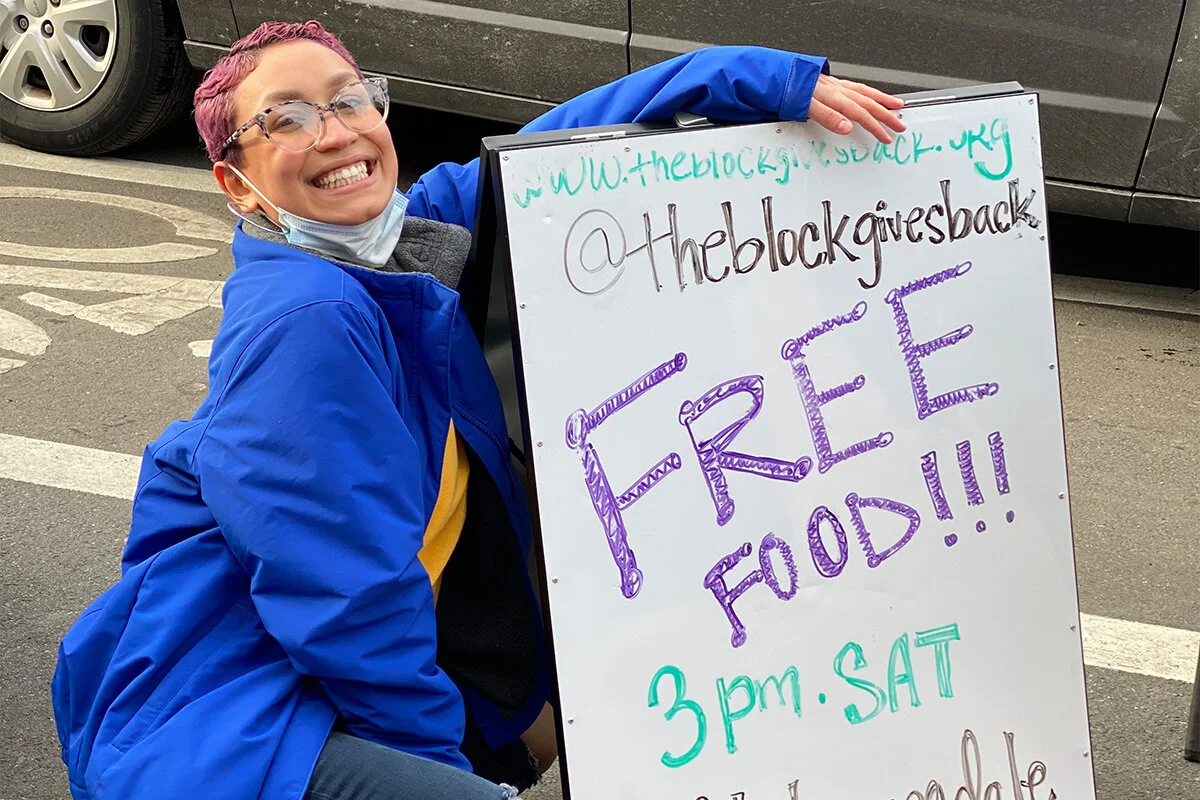 www.theblockgivesback.org
@theblockgivesback
FREE
FOOD!!!
3pm. SAT